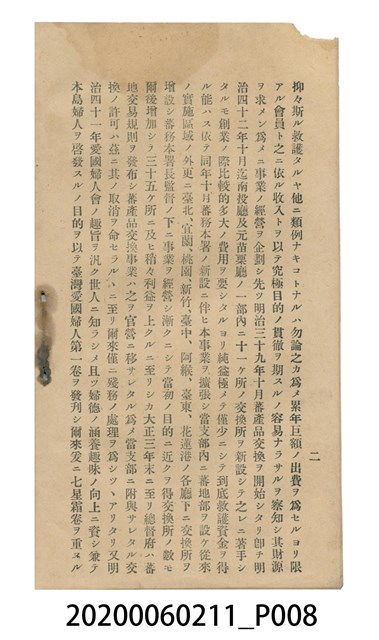 二
抑々斯ル救護タルヤ他ニ類例ナキコトナルハ勿論之カ為メ累年巨額ノ出費ヲ為セルヨリ限
アル會員ト之ニ依ル收入トヲ以テ究極目的ノ貫徹ヲ期スルノ容易ナラサルヲ察知シ其財源
ヲ求メン為メニ事業ノ經營ヲ企劃シ先ツ明治三十九年十月蕃產品交換ヲ開始シタリ即チ明
治四十二年十月迄南投廳及元苗栗廳ノ一部內ニ十一ケ所ノ交換所ヲ新設シテ之レニ著手シ
タルモ創業ノ際比較的多大ノ費用ヲ要シタルヨリ純益極メテ僅少ニシテ到底救護資金ヲ得
ル能ハス依テ同年十月蕃務本署ノ新設ニ伴ヒ本事業ヲ擴張シ當支部內ニ蕃地部ヲ設ケ從來
ノ實施區域ノ外更ニ臺北、宜蘭、桃園、新竹、臺中、阿緱、臺東、花蓮港ノ各廳下ニ交換所ヲ
增設シ蕃務本署長監督ノ下ニ事業ヲ經營シ漸クニシテ當初ノ目的ニ近クヲ得交換所ノ數モ
爾後增加シテ三十五ケ所ニ及ヒ稍々利益ヲ上クルニ至リシカ大正三年末ニ至リ總督府ハ蕃
地交易規則ヲ發布シ蕃產品交換事業ハ之ヲ官營ニ移サレタル為メ當支部ニ附與サレタル交
換ノ許可ハ茲ニ其ノ取消ヲ命セラルヽニ至リ爾來僅ニ殘務ノ處理ヲ為シツヽアリタリ又明
治四十一年愛國婦人會ノ趣旨ヲ汎ク世人ニ知ラシメ且ツ婦德ノ涵養趣味ノ向上ニ資シ兼テ
本島婦人ヲ啓發スルノ目的ヲ以テ臺灣愛國婦人第一卷ヲ發刊シ爾來爰ニ七星霜卷ヲ重ヌル
20200060211_P008